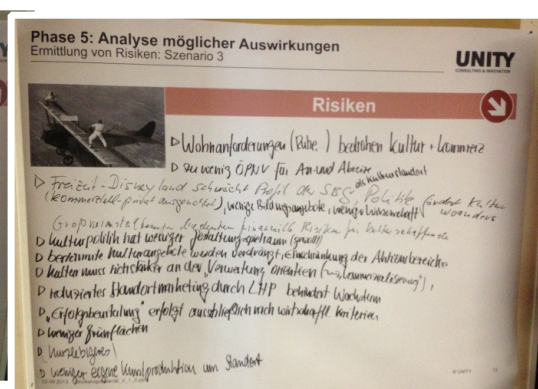 Phase 5: Analyse möglicher Auswirkungen
Ermittlung von Risiken: Szenario 3
UNITY
CONSULTING & INNOVATION
Risiken
▷ Wohnanforderungen (Ruhe) bedrohen Kultur + Kommerz
▷ zu wenig ÖPNV für An- und Abreise
als Kulturstandort
▷ Freizeit-Disneyland schwächt Profil der SBG, Politik fördert Kultur
(kommerziell-privat ausgerichtet), wenige Bildungsangebote, wenig Wissenschaft woanders
finanzielle Risiken für Kulturschaffende
▷ Kulturpolitik hat weniger Gestaltungsspielraum
▷ bestimmte Kulturangebote werden verdrängt, Einschränkung der
▷ Kultur muss sich stärker an der Verwertung orientieren (Kommerzialisierung),
▷ reduziertes Standortmarketing durch LHP behindert Wachstum
▷ "Erfolgsbeurteilung" erfolgt ausschließlich nach wirtschaftl. Kriterien
▷ weniger Grünflächen
▷ weniger eigene Kunstproduktion am Standort
© UNITY